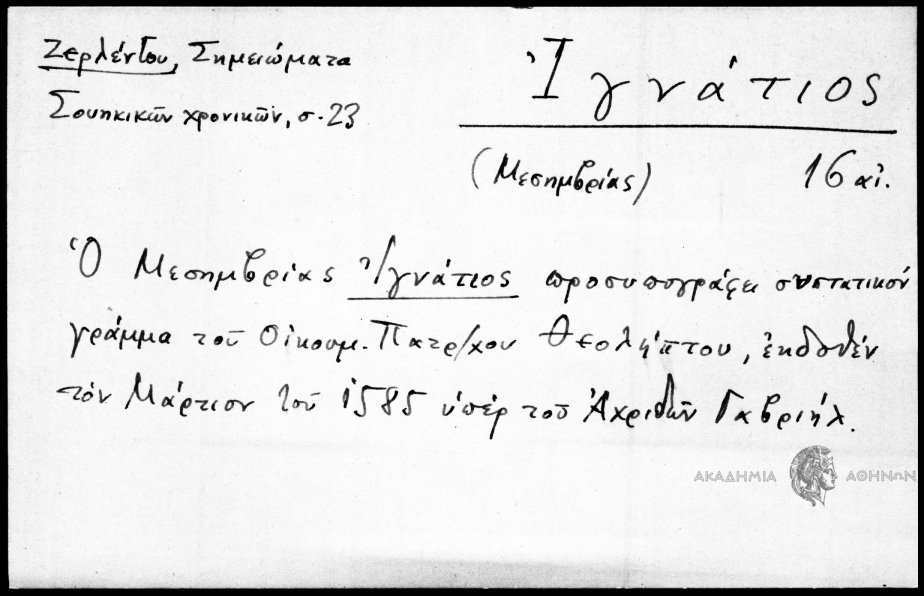 Ζερλέντου, Σημειώματα
Σουηκικῶν χρονικῶν, σ. 23
Ἰγνάτιος
(Μεσημβρίας) 16 αἰ.
Ὁ Μεσημβρίας Ἰγνάτιος προσυπογράφει συστατικόν
γράμμα τοῦ Οἰκουμ. Πατρ/χου Θεολήπτου, ἐκδοθέν
τόν Μάρτιον τοῦ 1585 ὑπέρ τοῦ Ἀχριδῶν Γαβριήλ.
ΑΚΑΔΗΜΙΑ ΑΘΗΝΩΝ